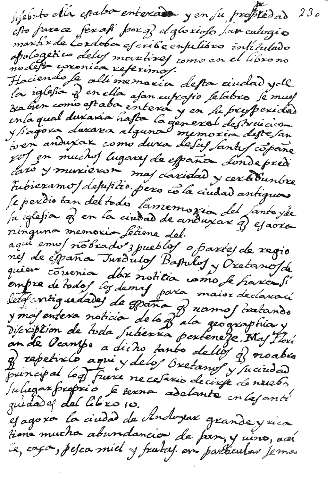 230
estaba entera y en su prosperidad
esto parece ser asi porq el glorioso san eulogio
martir de Cordoba escribe en su libro intitulado
apologetico de los martires como en el libro no
de esta coronica referimos
Haciendose alli memoria desta ciudad y de
la iglesia q en ella a san eufrasio
bien como estaba entera y en su prosperidad
en la qual duraria hasta la general destruicion
y si agora durara alguna memoria deste san
to en anduxar como dura de los santos copañe
ros en muchos lugares de españa donde predi
caro y murieron mas claridad y certidumbre
tubieramos de su sitio pero co la ciudad antigua
se perdio tan del todo la memoria del santo y de
su iglesia q en la ciudad de anduxar q es aora
ninguna memoria se tiene del
aqui emos nobrado 3 pueblos o partes de regio
nes de españa Turdulos Bastulos y Oretanos de
quien convenia dar noticia como se hara si
empre de todos los demas para maior declaraci
de las antiguedades de españa q vamos tratando
y mas entera noticia de lo q a la geographia y
discription de toda su tierra pertenece. Mas Flori
an de Ocampo a dicho tanto dellos q no abra
q repetirlo aqui y de los Oretanos y su ciudad
principal lo q fuere necesario decirse de nuebo
su lugar proprio se terna adelante en las anti
guedades del libro 10.
es agora la ciudad de Andujar grande y rica
tiene mucha abundancia de pan, y vino, acei
te, caça, pesca miel y frutas en particular